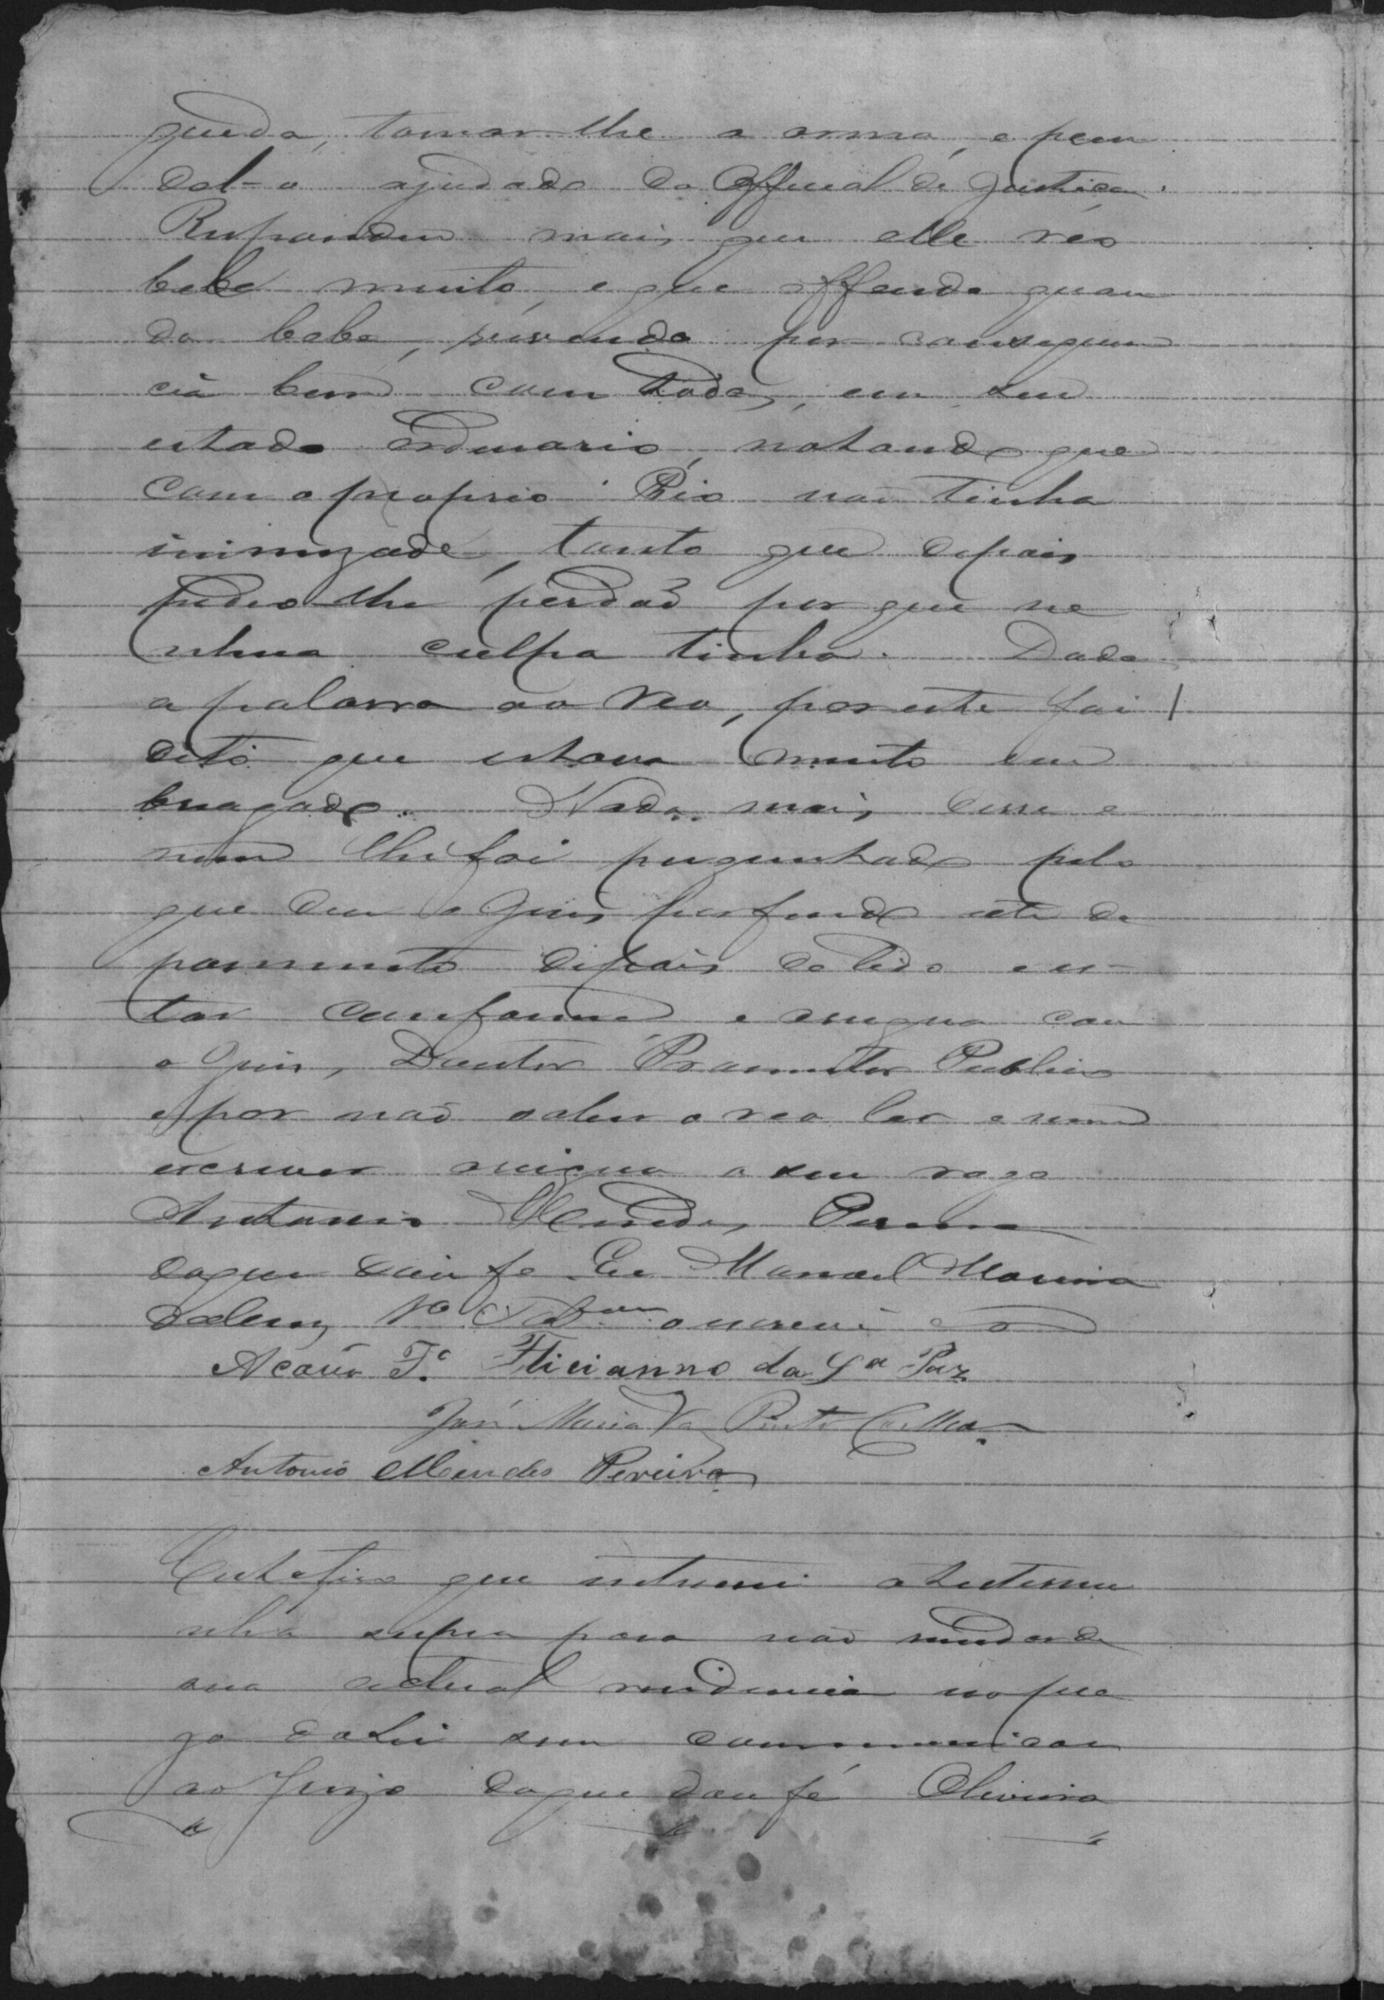 queda, tomar-lhe a arma, e pren
del-o ajudado do Official de Justiça.
Respondeu mais que elle réo
bebe muito, e que offende quan
do bebe, vivendo por consequen
cia bem com todos, em seu
estado ordinario, notando que
com o proprio Rio não tinha
inimizade, tanto que depois
pedio-lhe perdaõ por que ne
nhua culpa tinha. Dada
a palavra ao reo, por este foi
dito que estava muito em
briagado. Nada mais disse e
nem lhe foi perguntado pelo
que deu o Juis por findo este de
poimento depois de lido e es-
tar conforme e assigna com
o Juis, Doutor Promotor Publico
e por não saber o reo ler e nem
escrever assigna a seu rogo
Antonio Mendes Pereira
do que dou fe. Eu Manoel Moreira
1º o escrevi
Felicianno da Sª Paz
José Maria Vaz Pinto Coelho.
Antonio Mendes Pereira
Certefico que intimei a testemu
nha supra para não mudar de
sua actual residencia no pra
zo da Lei sem communicar
ao Juizo do que dou fé Oliveira